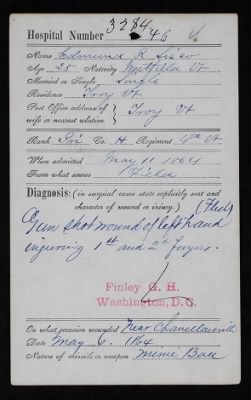 3284
Hospital Number 46
Name Edmund R. Sisco
Age 25 Nativity Westfield Vt
Married or Single Single
Residence Troy Vt
Post Office address of
wife or nearest relative. Troy Vt
Rank Pri Co. H Regiment 4th Vt
When admitted May 11 1864
From what source Field
Diagnosis: (in surgical cases state explicitly seat and
character of wound or injury.) (Flesh)
Gun shot wound of left hand
injuring 1st and 2d fingers.
Finley G. H.
Washington, D.C.
On what occasion wounded Near Chancellorsville
Date May 6. 1864
Nature of missile or weapon Minie Ball